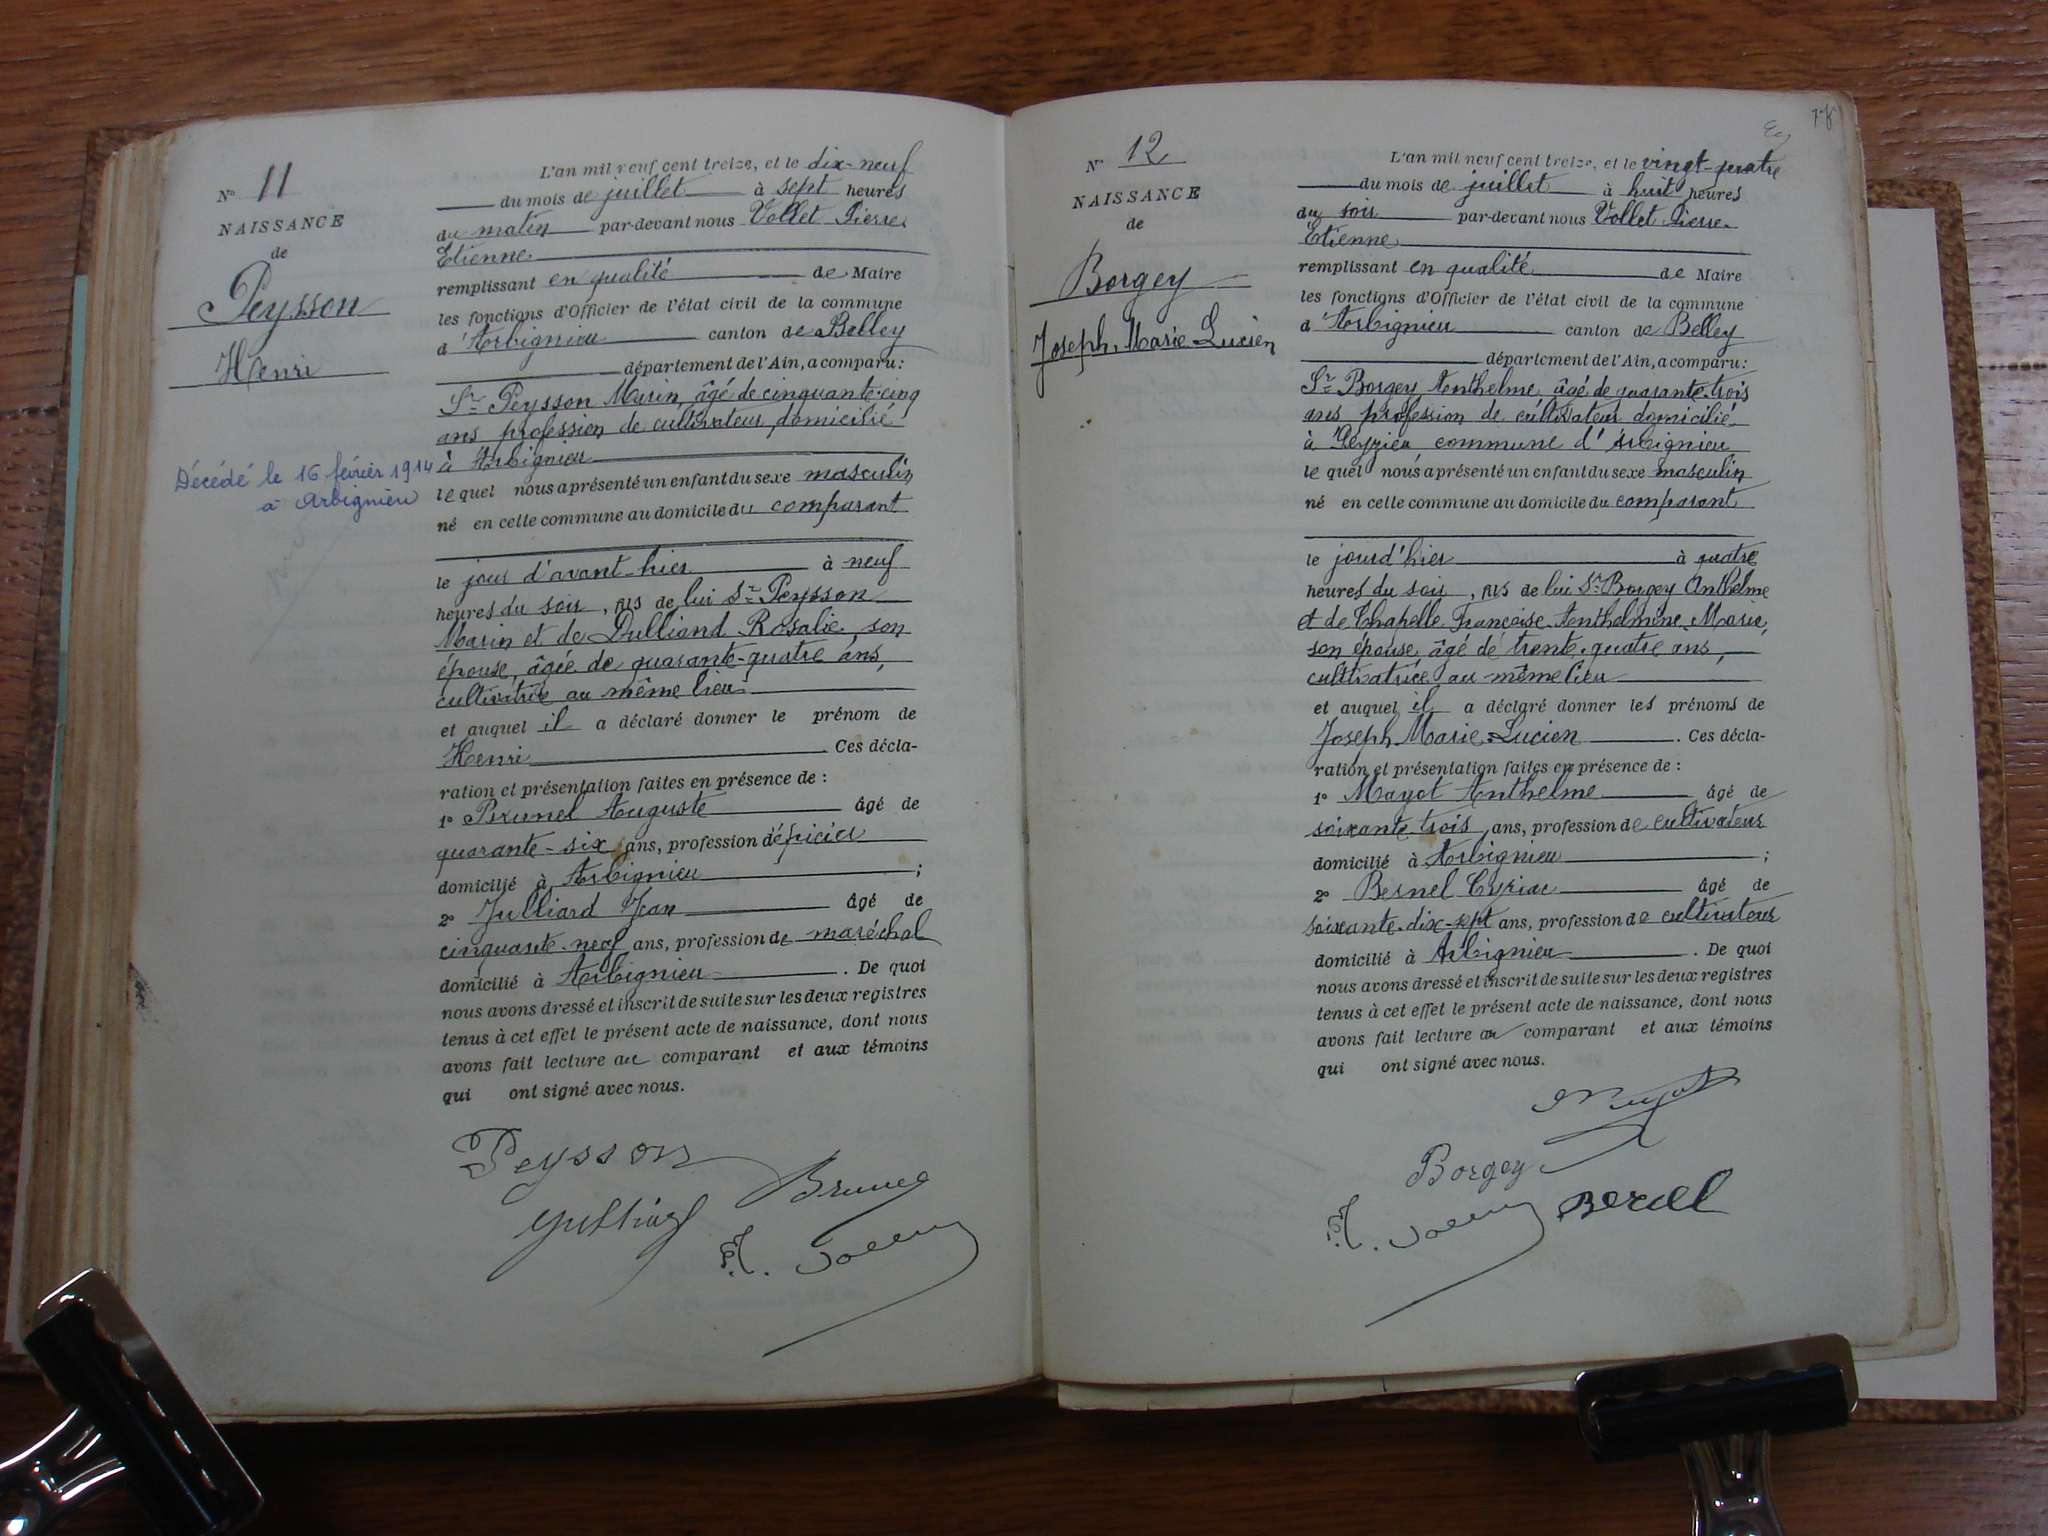 N° 11
NAISSANCE
de
Peysson
Henri
Décédé le 16 février 1914
à Arbignieu
L'an mil neuf cent treize, et le dix-neuf
du mois de juillet à sept heures
du matin par-devant nous Vollet Pierre
Etienne
remplissant en qualité de Maire
les fonctions d'Officier de l'état civil de la commune
d'Arbignieu canton de Belley
département de l'Ain, a comparu:
Sr Peysson Marin, âgé de cinquante-cinq
ans profession de cultivateur domicilié
à Arbignieu
le quel nous a présenté un enfant du sexe masculin
né en cette commune au domicile du comparant
le jour d'avant-hier à neuf
heures du soir, fils de lui Sr Peysson
Marin et de Dulliand Rosalie, son
épouse, âgée de quarante-quatre ans,
cultivatrice au même lieu
et auquel il a déclaré donner le prénom de
Henri Ces décla-
ration et présentation faites en présence de :
1° Brunel Auguste âgé de
quarante-six ans, profession d'épicier
domicilié à Arbignieu ;
2° Julliard Jean âgé de
cinquante-neuf ans, profession de maréchal
domicilié à Arbignieu . De quoi
nous avons dressé et inscrit de suite sur les deux registres
tenus à cet effet le présent acte de naissance, dont nous
avons fait lecture au comparant et aux témoins
qui ont signé avec nous.
Peysson
Brunel
N° 12
NAISSANCE
de
Borgey
Joseph-Marie-Lucien
L'an mil neuf cent treize, et le vingt-quatre
du mois de juillet à huit heures
du soir par-devant nous Vollet Pierre
Etienne
remplissant en qualité de Maire
les fonctions d'Officier de l'état civil de la commune
d'Arbignieu canton de Belley
département de l'Ain, a comparu:
Sr Borgey Anthelme, âgé de quarante-trois
ans profession de cultivateur domicilié
à Peyzieu commune d'Arbignieu
le quel nous a présenté un enfant du sexe masculin
né en cette commune au domicile du comparant
le jour d'hier à quatre
heures du soir, fils de lui Sr Borgey Anthelme
et de Chapelle Françoise-Anthelmine-Marie,
son épouse âgé de trente-quatre ans,
cultivatrice au même lieu
et auquel il a déclaré donner les prénoms de
Joseph-Marie-Lucien . Ces décla-
ration et présentation faites en présence de :
1° Mayot Anthelme âgé de
soixante trois ans, profession de cultivateur
domicilié à Arbignieu ;
2° Bernel Cyriac âgé de
soixante-dix-sept ans, profession de cultivateur
domicilié à Arbignieu . De quoi
nous avons dressé et inscrit de suite sur les deux registres
tenus à cet effet le présent acte de naissance, dont nous
avons fait lecture au comparant et aux témoins
qui ont signé avec nous.
Borgey